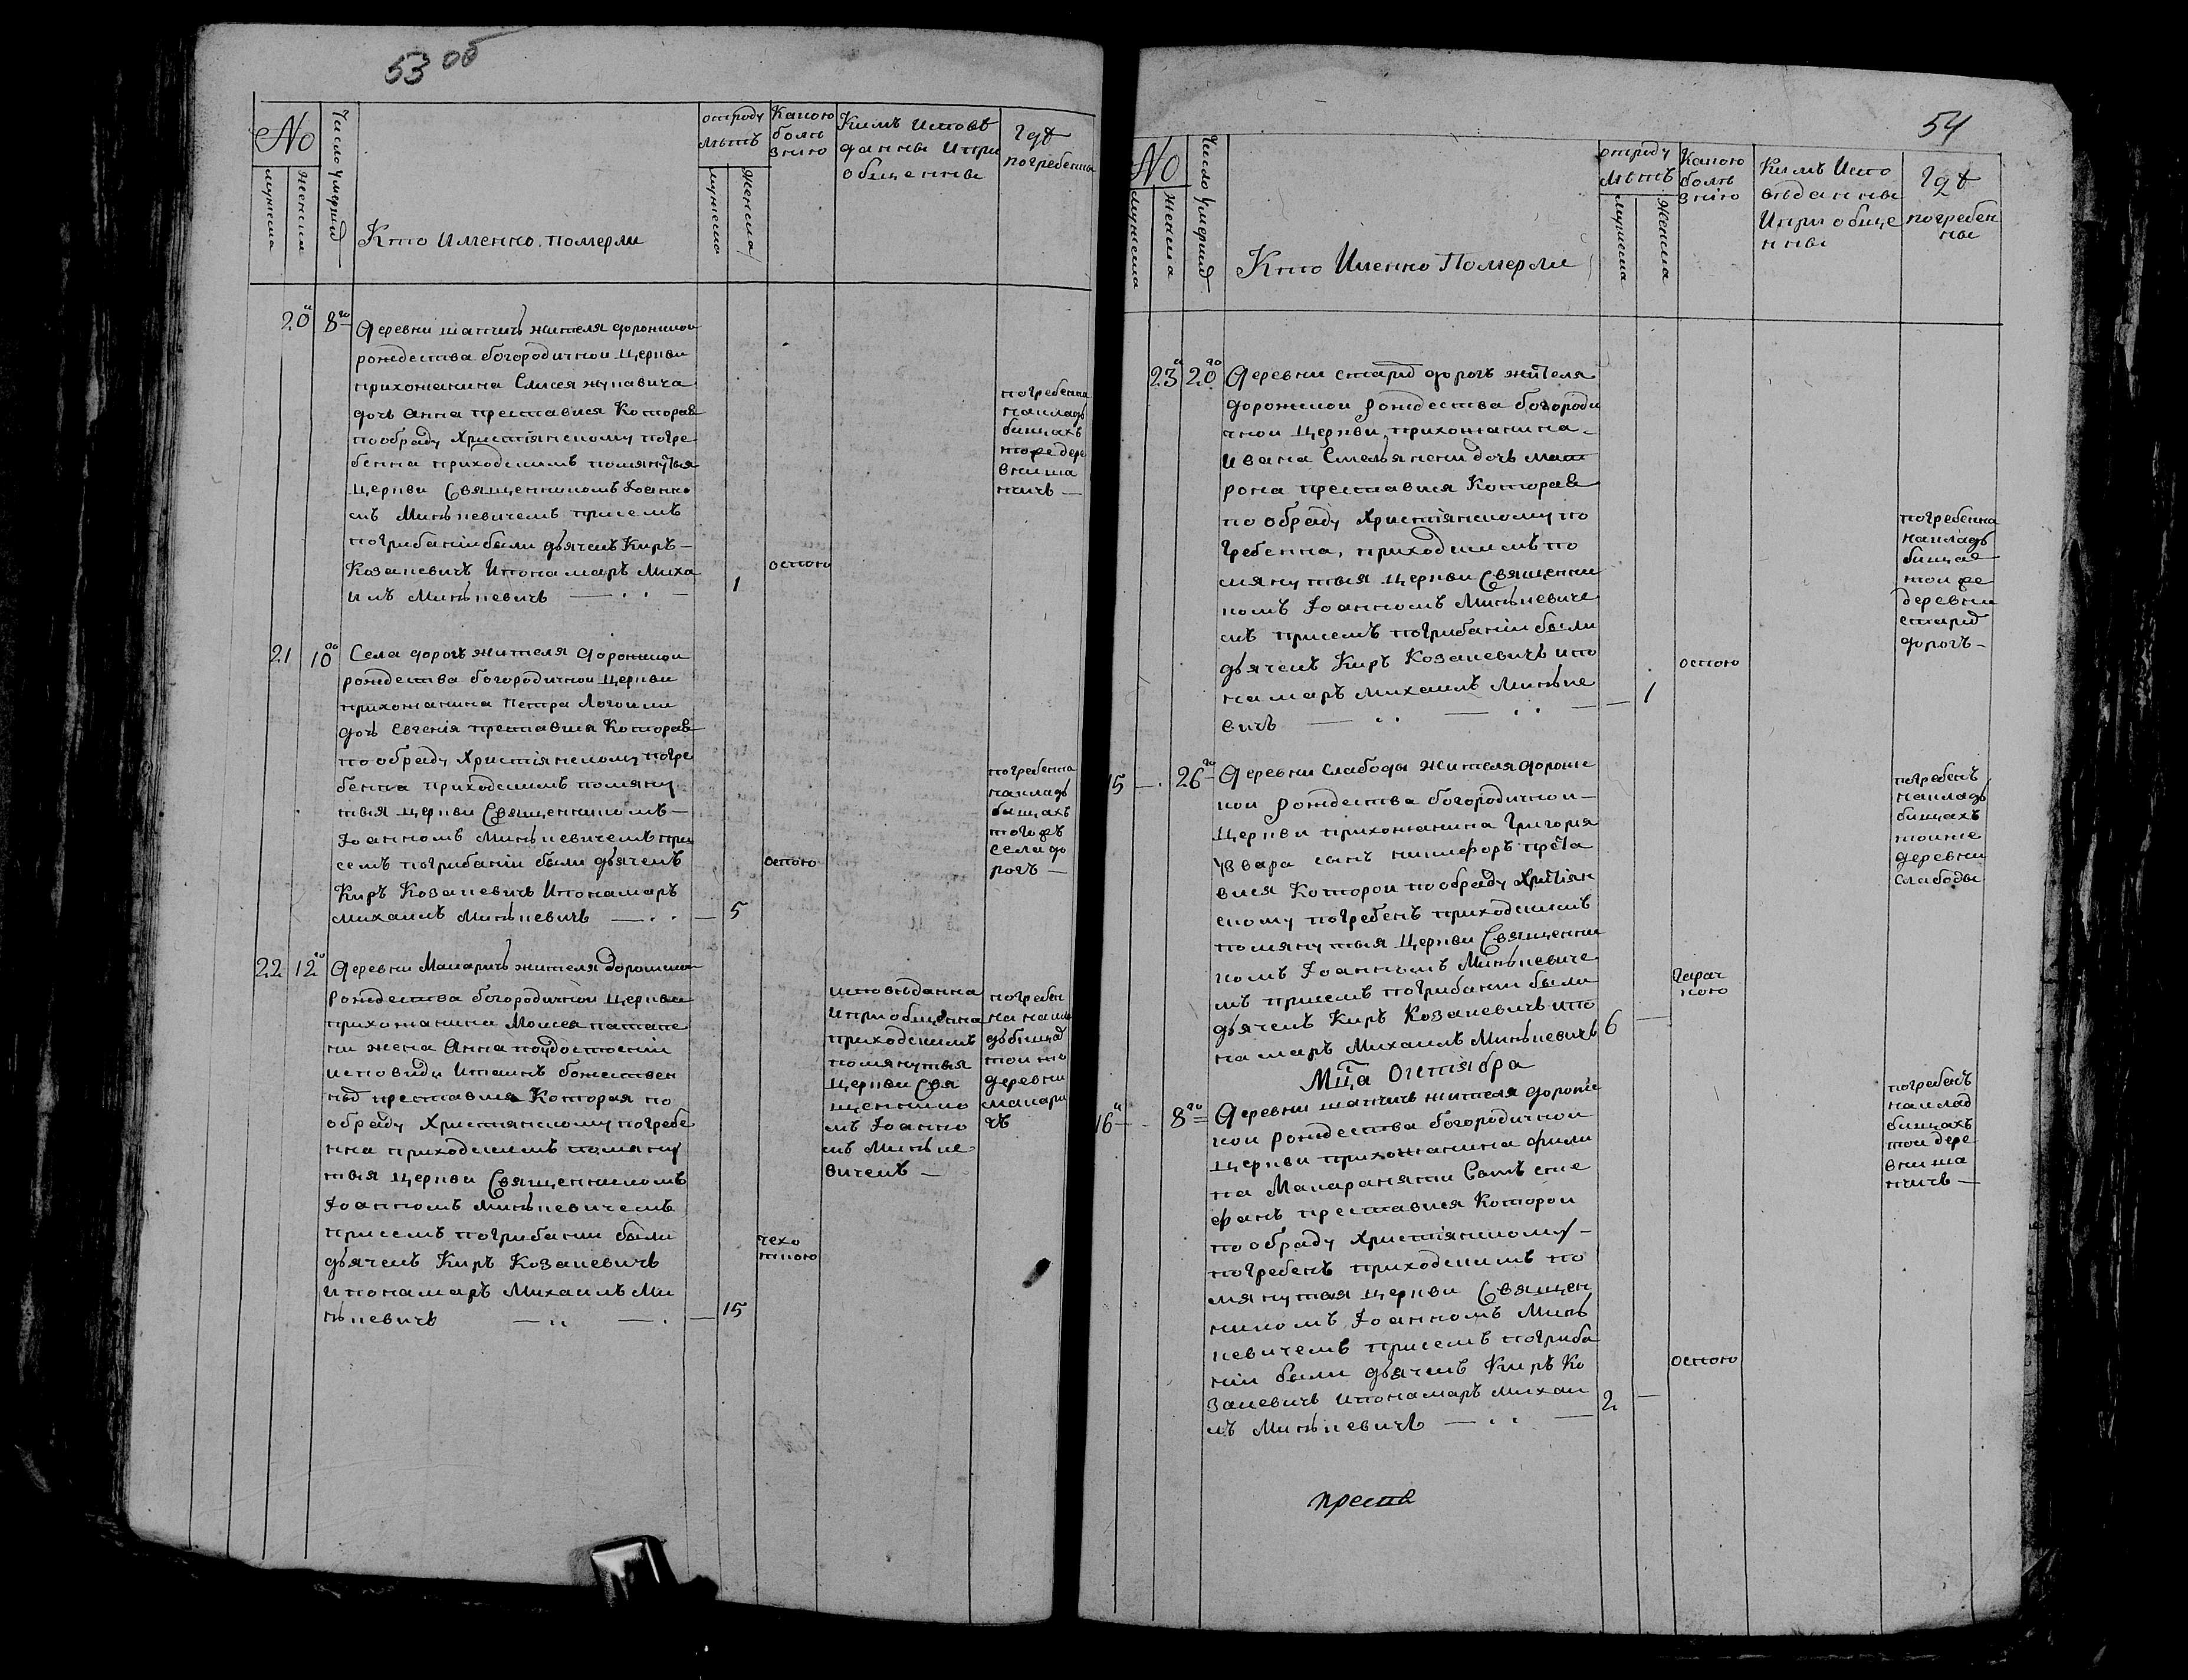 53 об
№
мужеска
женски
Число умершид
Кто Именно померли
отроду
лѣтъ
мужеска
женска
Какою
болѣ
знію
Кимъ исповѣ
данны и при
общенны
гдѣ
погребенны
20 8
Деревни шапчичъ жителя дорожкои
рождества богородичнои церкви
прихожанина Елисея жукавича
дочь Анна преставися Которая
пообряду Христіянскому погре
бенна приходскимъ помянутыя
церкви Священникомъ Іоанно
мъ Минькевичемъ присемъ
погрибаніи были дьячекъ Киръ
Козакевичъ Ипонамаръ Миха
илъ Минькевичъ
1
оспою
погребенна
накладъ
бищахъ
тоеже дере
вни ша
пчичъ
21 10
Села дорогъ жителя дорожкои
рождества богородичнои церкви
прихожанина Петра Логойки
дочь Евгенія преставися Которая
по обряду Христіянскому погре
бенна приходскимъ помяну
тыя церкви Священникомъ
Іоанномъ Минькевичемъ при
семъ погрибаніи были дьячекъ
Киръ Козакевичъ Ипонамаръ
михаилъ Минькевичъ
5
оспою
погребенна
накладъ
бищахъ
тогожъ
села до
рогъ
22 12
Деревни Макаричъ жителя дорожкои
рождества богородичнои церкви
прихожанина Моисея
жена Анна поудостоеніи
исповиди Итаинъ божествен
ныд преставися Которая по
обряду Християнскому погребе
нна приходскимъ помяну
тыя церкви Священникомъ
Іоанномъ Минькевичемъ
присемъ погрибании были
дьячекъ Киръ Козакевичъ
ипонамаръ Михаилъ Ми
нькевичъ
15
чехо
ткою
исповѣданна
иприобщенна
приходскимъ
помянутыя
церкви Свя
щеннико
мъ Іоанно
мъ Минкке
вичемъ
погребен
на накла
дьбищад
тои же
деревни
макари
чъ
54
№
мужеска
женска
Число умершид
Кто Именно Померли
отроду
лѣтъ
мужеска
женска
Какою
болѣ
знію
Кимъ Испо
вѣданны
Иприобще
нны
гдѣ
погребен
ны
23 20
Деревни старид дорогъ жителя
дорожкои рождества богороди
чнои церкви прихожанина
ивана Емельянски дочь мат
рона преставися Которая
по обряду Христіянскому по
гребенна, приходскимъ по
мянутыя церкви Священни
комъ Іоанномъ Минькевиче
мъ присемъ погрибаніи были
дьячекъ Киръ Козакевичъ ипо
намаръ михаилъ Минькке
вичъ
1
оспою
погребенна
накладъ
бищае
тои же
деревни
старид
дорогъ
15 26
Деревни Слабоды жителя дорож
кои рождества богородичнои
церкви прихожанина Григория
сынъ никифоръ преста
вися Которои пообряду Христіян
скому погребенъ приходскимъ
помянутыя церкви Священни
комъ Іоанномъ Минькевиче
мъ присемъ погрибании были
дьячекъ Киръ Козакевичъ ипо
намаръ Михаилъ Минькевичъ
6
гарач
кою
погребенъ
накладъ
бищахъ
тоиже
деревни
слабоды
Мца Октября
16 8
Деревни шапчичъ жителя дорож
кои рождества богородичнои
церкви прихожанина фили
па Сынъ сте
фанъ преставися Которои
пообряду Христіянскому
погребенъ приходскимъ по
мянутыя церкви Священ
никомъ Іоанномъ Минь
кевичемъ присемъ погриба
ніи были дьячекъ Киръ Ко
закевичъ ипонамаръ михаи
лъ Минькевичъ
2
оспою
погребенъ
наклад
бищахъ
тои дере
вни ша
пчичъ